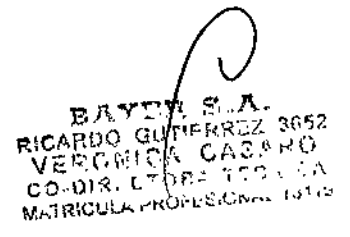 BAYER S.A.
RICARDO GUTIERREZ 3652
VERONICA CASARO
CO-DIRECTORA TECNICA
MATRICULA PROFESIONAL